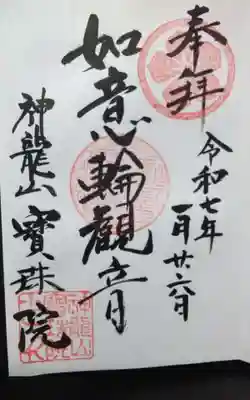 奉拝
令和七年
一月廿六日
如意輪観音
神龍山 寶珠院